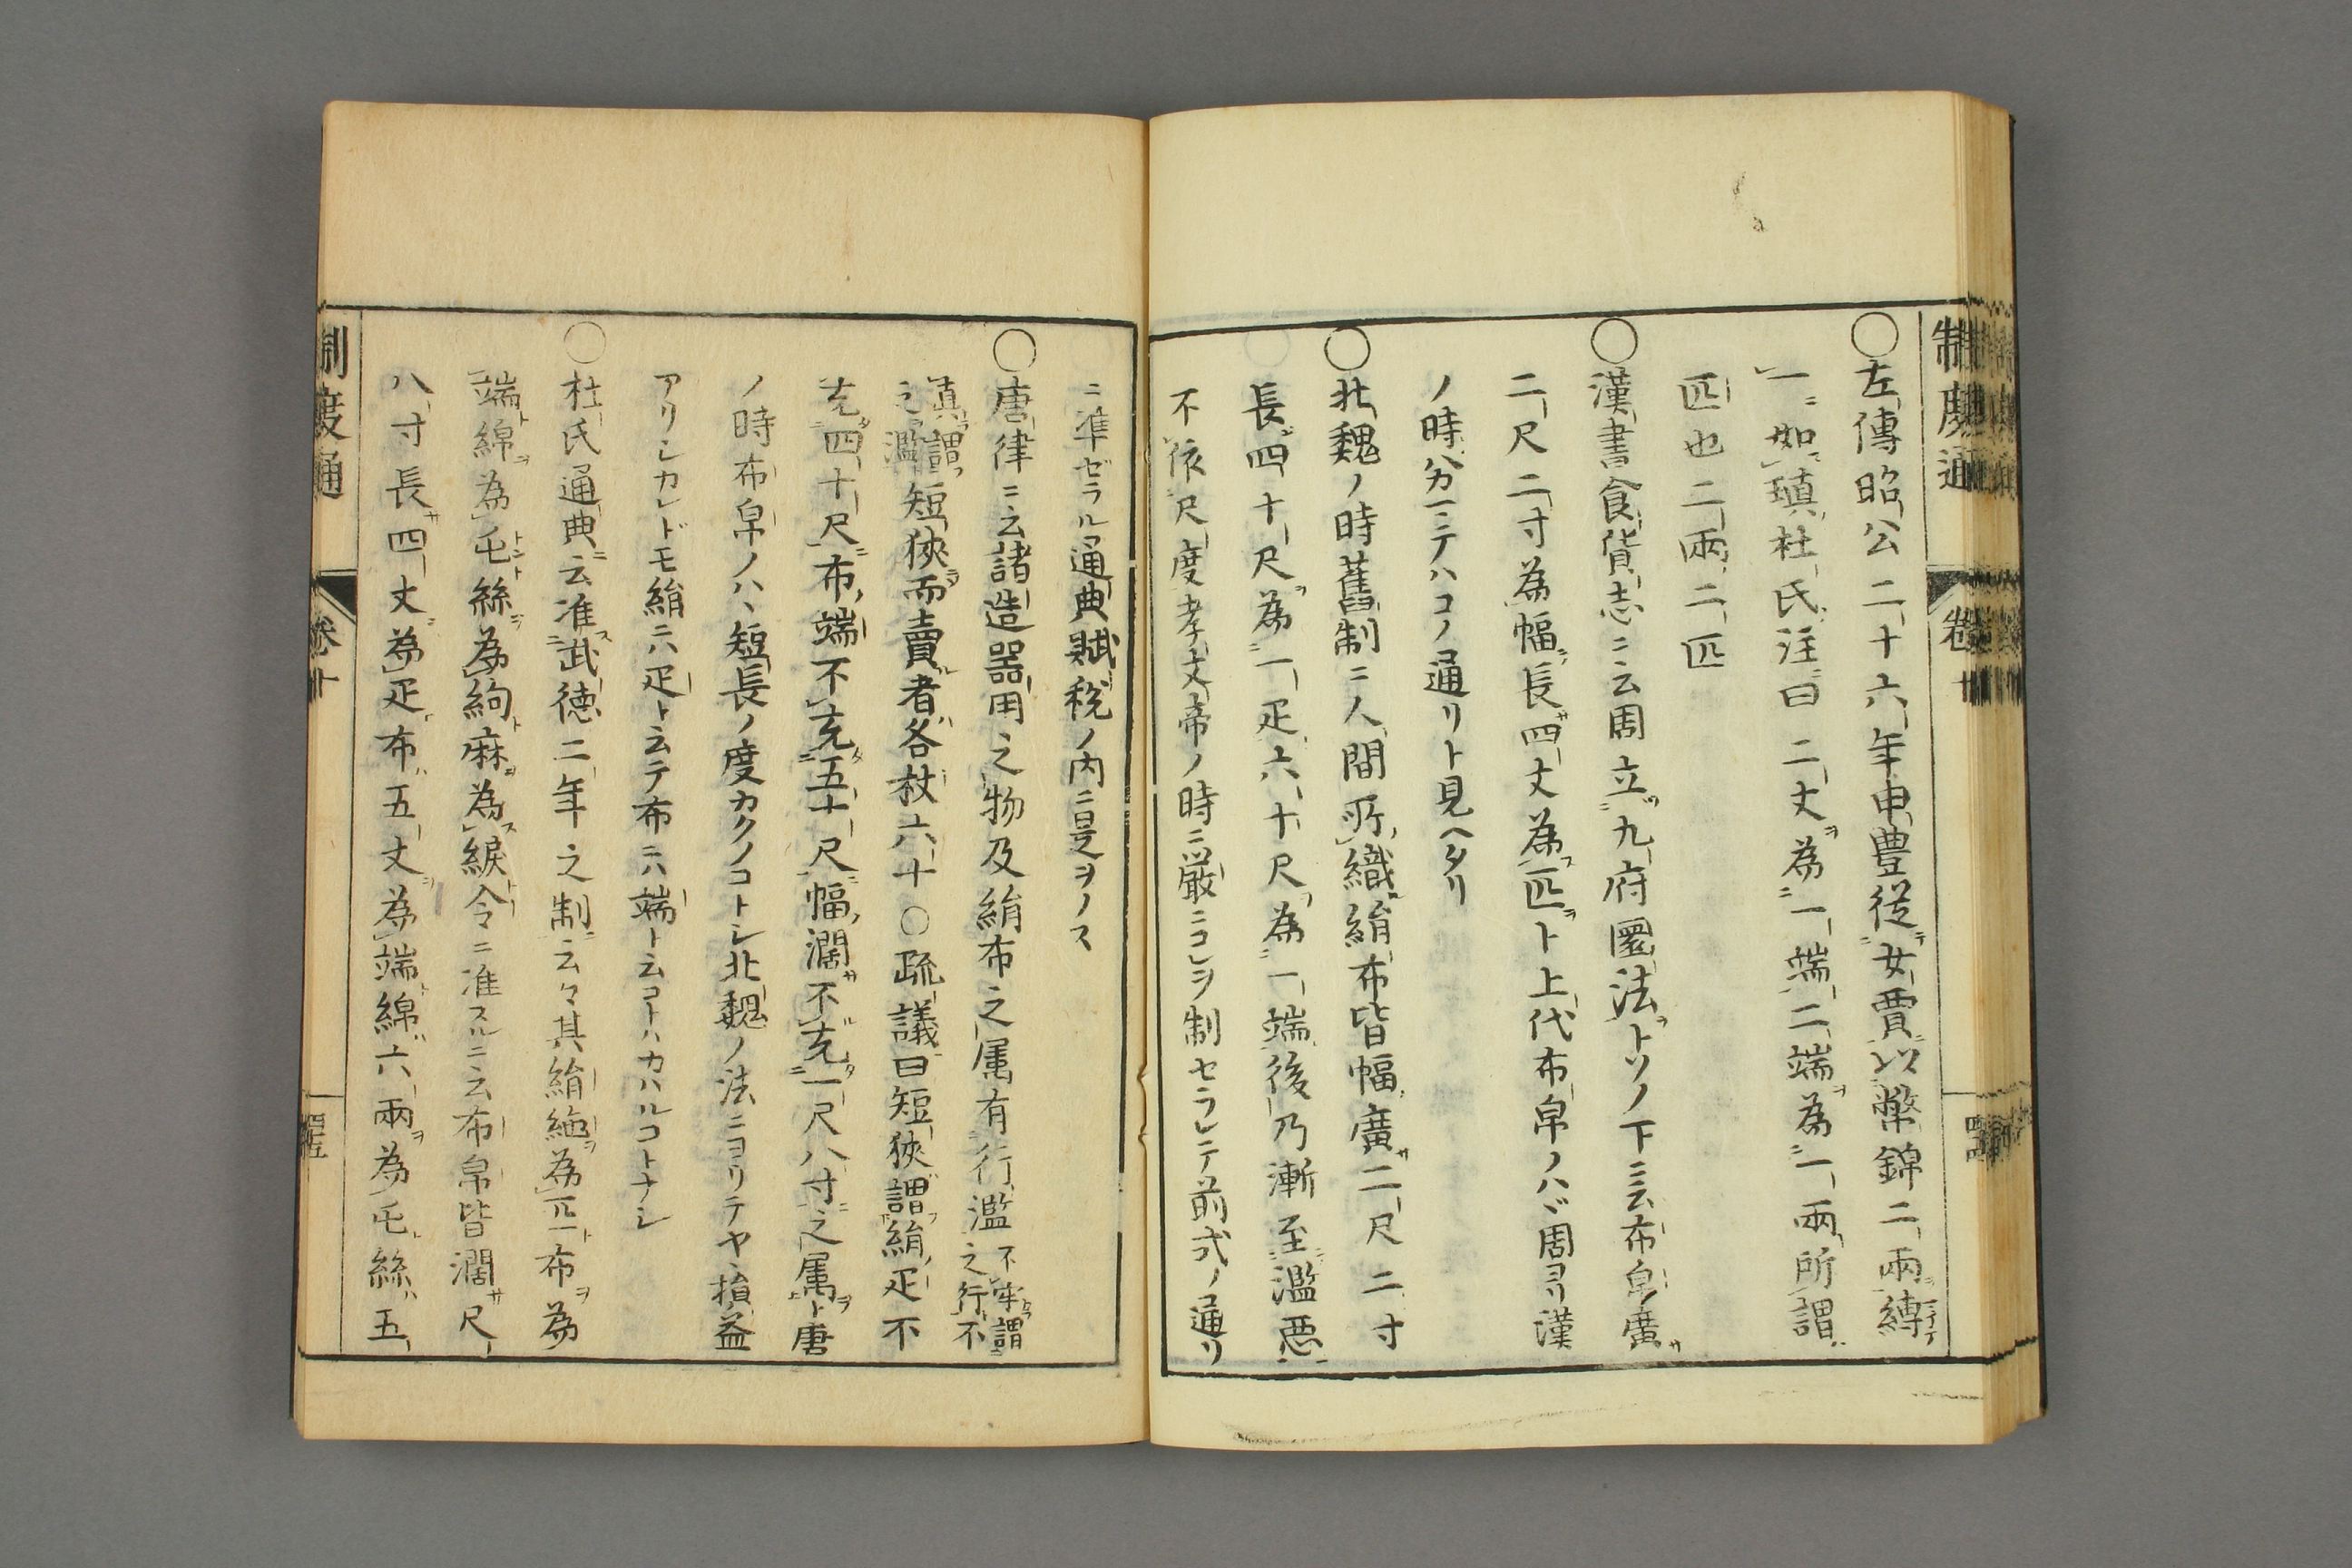 制度通
卷十
〇左傳昭公二十六年申豊従女賈以幣錦二兩縳
一如瑱杜氏注曰二丈為一端二端為一兩所謂
匹也二兩二匹
〇漢書食貨志ニ云周立九府圜法トソノ下ニ云布帛廣
二尺二寸為幅長四丈為匹ト上代布帛ノハヾ周ヨリ漢
ノ時分一ニテハコノ通リト見ヘタリ
〇北魏ノ時舊制ニ人間所織絹布皆幅廣二尺二寸
長四十尺為一疋六十尺為一端後乃漸至濫惡
不依尺度孝文帝ノ時ニ厳ニコレヲ制セラレテ前式ノ通リ
ニ準ゼラル通典賦税ノ内ニ是ヲノス
〇唐律ニ云諸造器用之物及絹布之属有行濫不牢謂之行不
真謂之濫短狹而賣者各杖六十〇疏議曰短狹謂絹疋不
充四十尺布端不充五十尺幅濶不充一尺八寸之属ト唐
ノ時布帛ノハヾ短長ノ度カクノコトシ北魏ノ法ニヨリテヤヽ損益
アリシカレドモ絹ニハ疋ト云テ布ニハ端ト云コトハカハルコトナシ
〇杜氏通典云准武徳二年之制云々其絹絁為匹布為
端綿為屯絲為絇麻為綟令ニ准スルニ云布帛皆濶尺
八寸長四丈為疋布五丈為端綿六兩為屯絲五
制度通
卷十